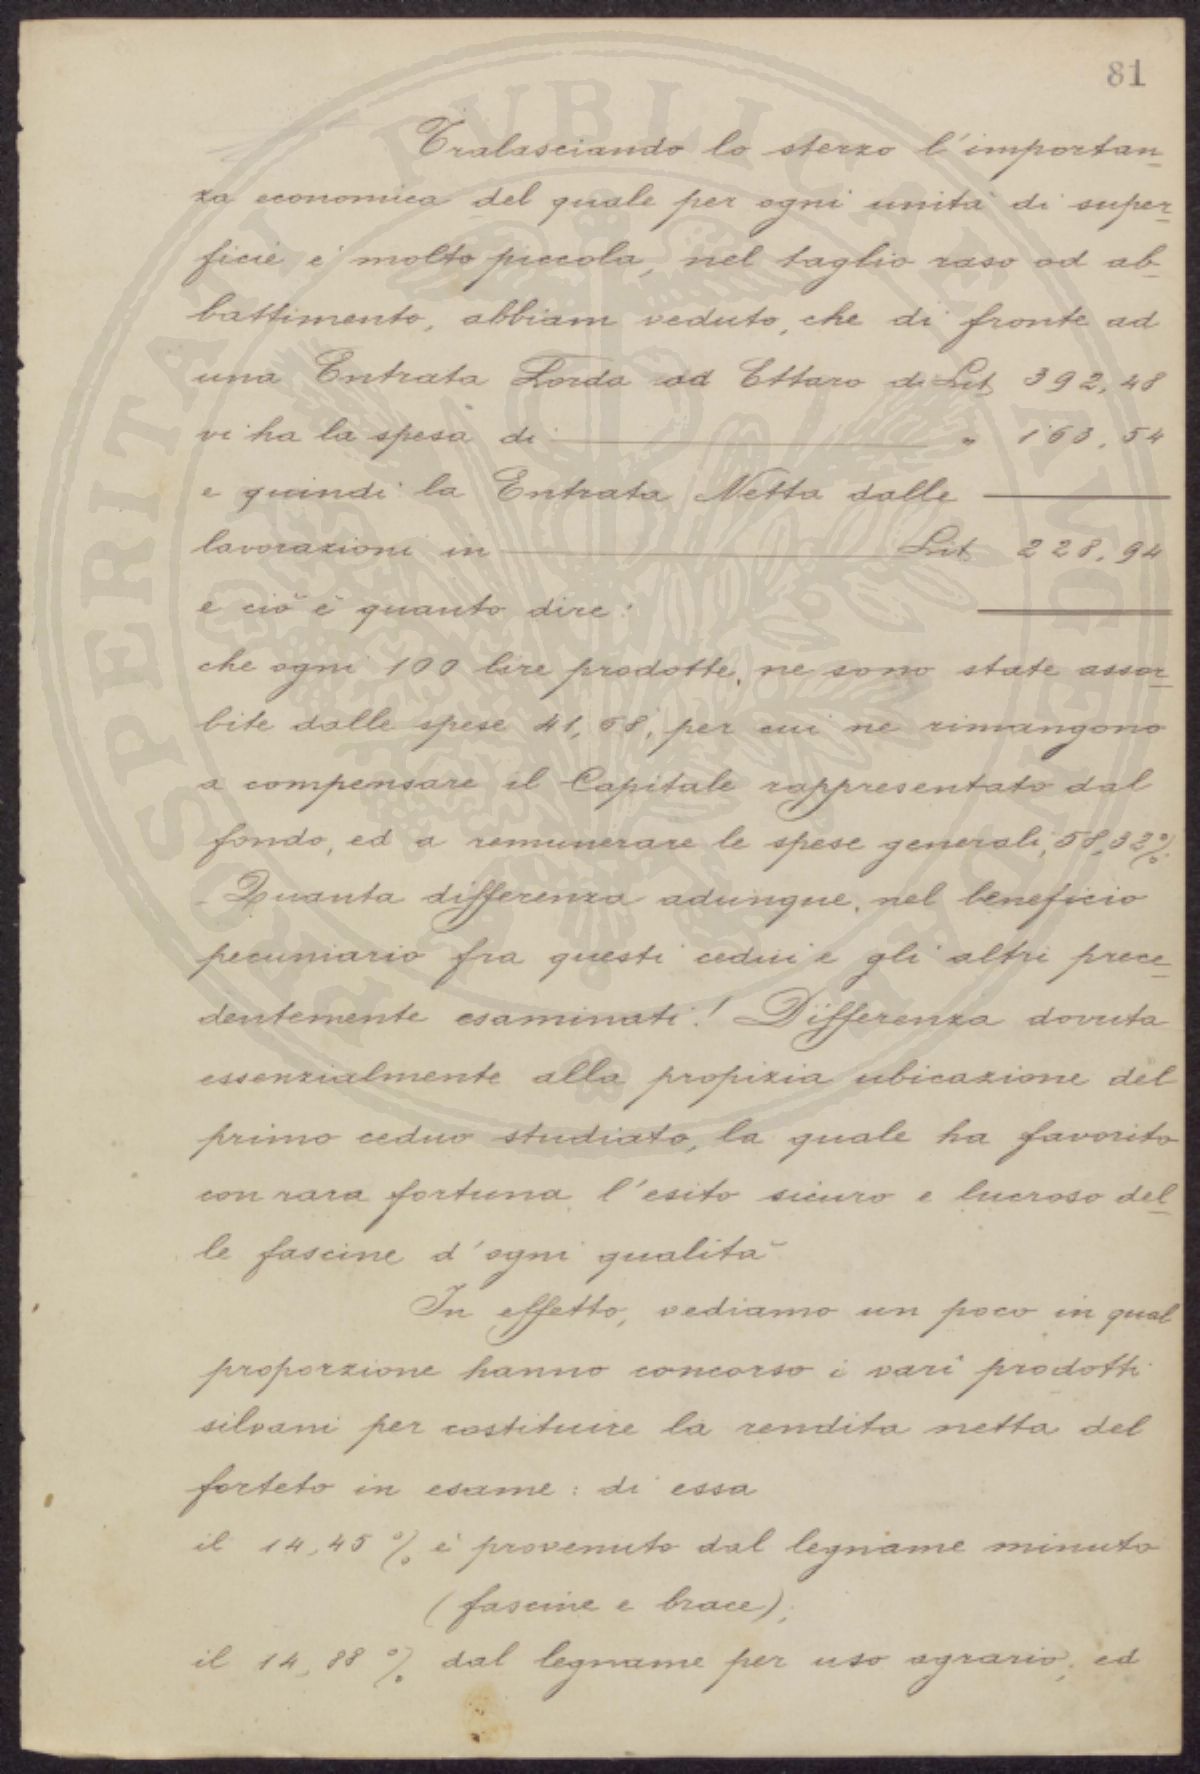 81
Tralasciando lo sterzo l'importan-
za economica del quale per ogni unità di super-
ficie è molto piccola, nel taglio raso od ab-
battimento, abbiam veduto, che di fronte ad
una Entrata Lorda ad Ettaro di Lit 392,48
vi ha la spesa di " 163,54
e quindi la Entrata Netta dalle
lavorazioni in Lit 228,94
e ciò è quanto dire:
che ogni 100 lire prodotte, ne sono state assor-
bite dalle spese 41,68, per cui ne rimangono
a compensare il Capitale rappresentato dal
fondo, ed a remunerare le spese generali, 58,32%.
Quanta differenza adunque, nel beneficio
pecuniario fra questi cedui e gli altri prece-
dentemente esaminati! Differenza dovuta
essenzialmente alla propizia ubicazione del
primo ceduo studiato, la quale ha favorito
con rara fortuna l'esito sicuro e lucroso del-
le fascine d'ogni qualità
In effetto, vediamo un poco in qual
proporzione hanno concorso i vari prodotti
silvani per costituire la rendita netta del
forteto in esame: di essa
il 14,45 % è provenuto dal legname minuto
(fascine e brace);
il 14,88 % dal legname per uso agrario, ed
PROSPERITATI PVBLICAE AVGENDAE